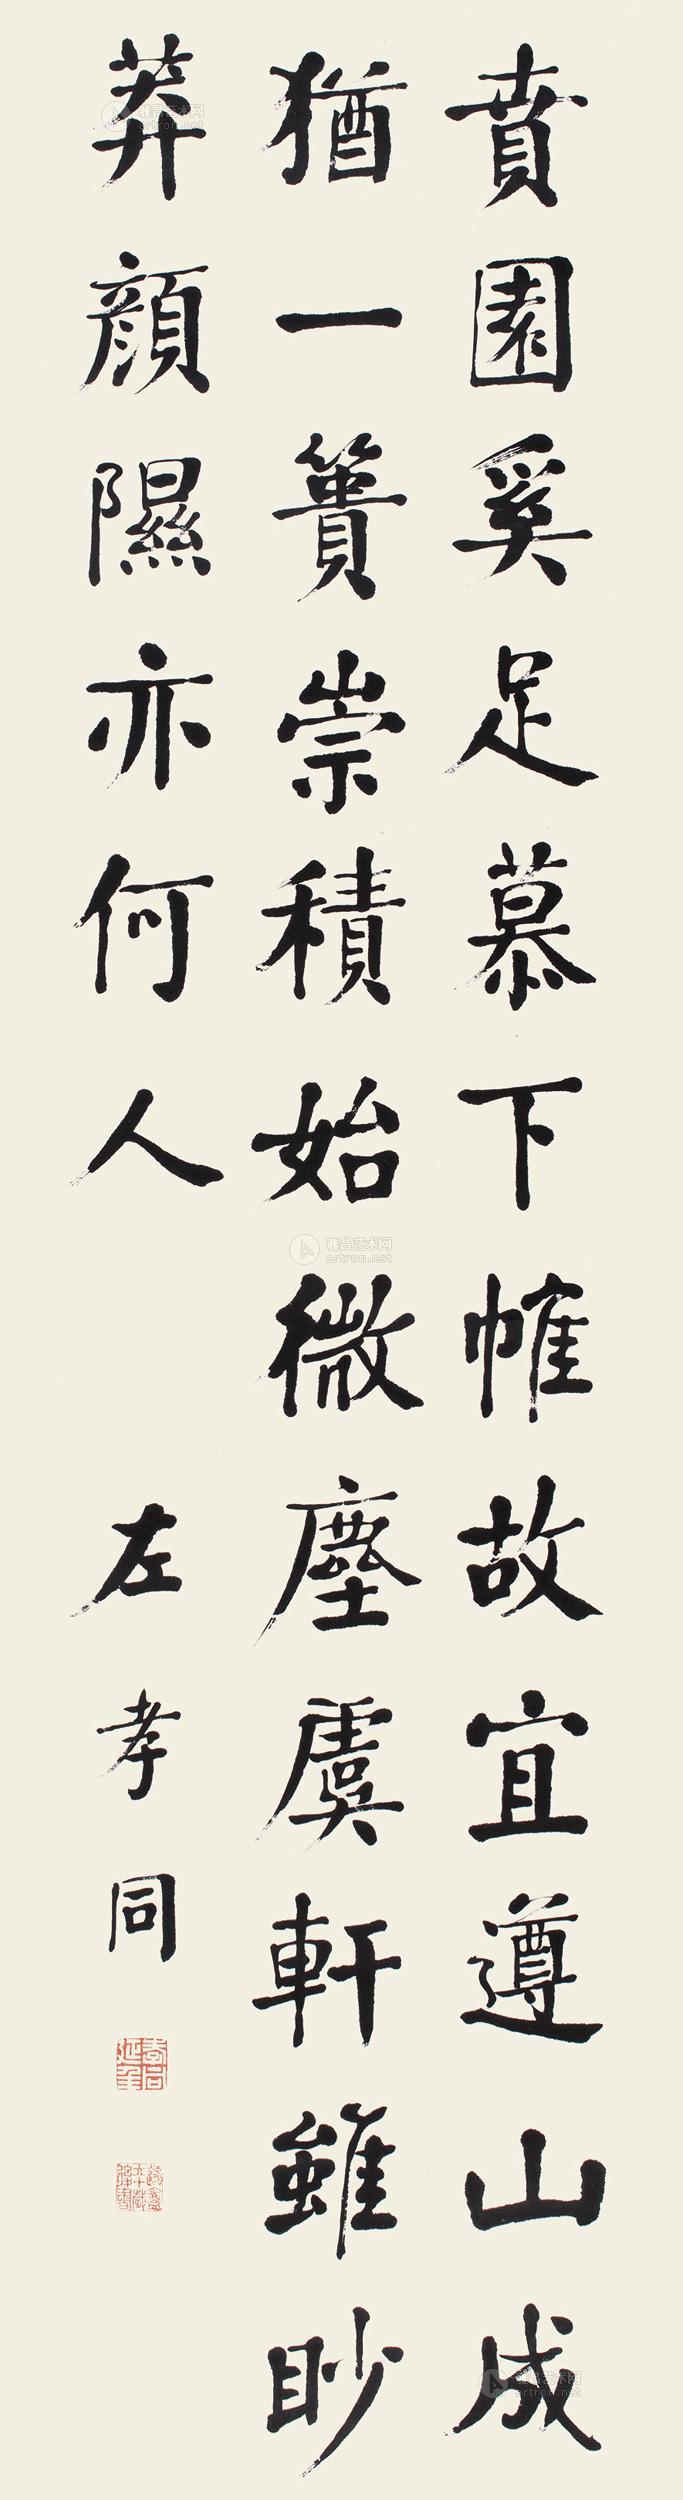 賁園奚足慕下帷故宜遵山成
猶一簣崇積始微塵虞軒雖眇
莽顏隰亦何人 左孝同
雅昌艺术网
artron.net